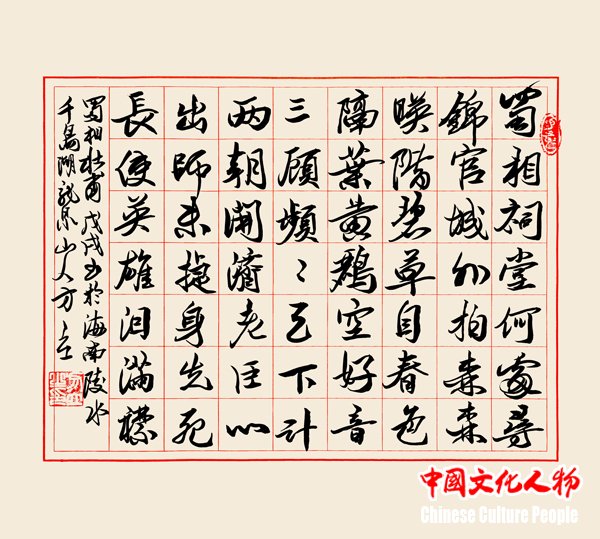 蜀相祠堂何處尋
錦官城外柏森森
暎階碧草自春色
隔葉黄鸝空好音
三顧頻〻天下計
两朝開濟老臣心
出師未捷身先死
長使英雄泪滿襟
蜀相杜甫 戊戌書於海南陵水
千島湖龍泉山人方立
中國文化人物
Chinese Culture People